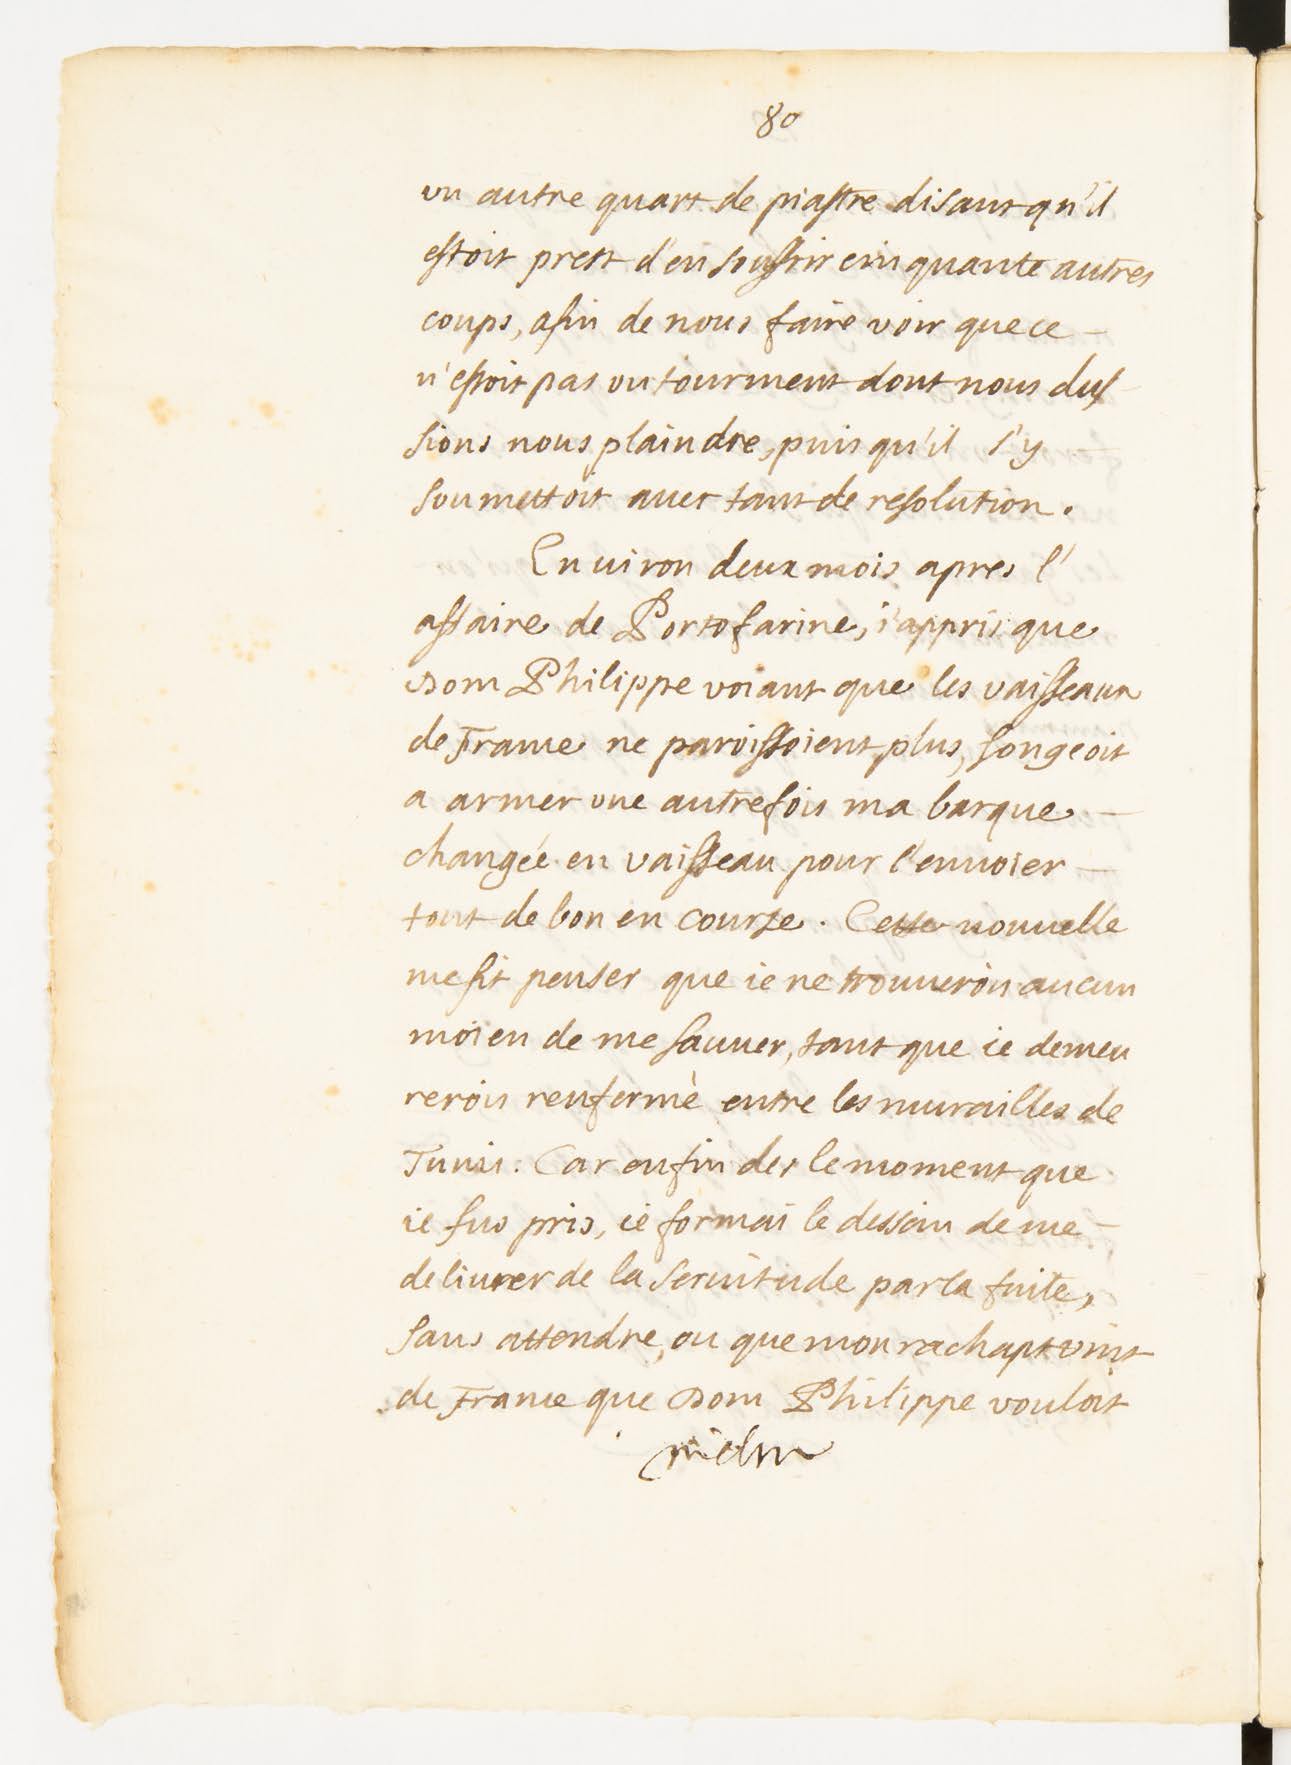 80
vn autre quart de piastre disant qu'il
estoit prest d'en souffrir cinquante autres
coups, afin de nous faire voir que ce
n'estoit pas vn tourment dont nous dus
sions nous plaindre, puis qu'il s'y
soumettoit auec tant de resolution.
Enuiron deux mois apres l'
affaire de Portofarine, i'appris que
Dom Philippe voiant que les vaisseaux
de France ne paroissoient plus, songeoit
a armer vne autrefois ma barque
changée en vaisseau pour l'enuoier
tout de bon en course. Cette nouuelle
me fit penser que ie ne trouuerois aucun
moien de me sauuer, tant que ie demeu
rerois renfermè entre les murailles de
Tunis. Car enfin des le moment que
ie fus pris, ie formai le dessein de me
deliurer de la seruitude par la fuite,
sans attendre, ou que mon rachapt vint
de France que Dom Philippe vouloit